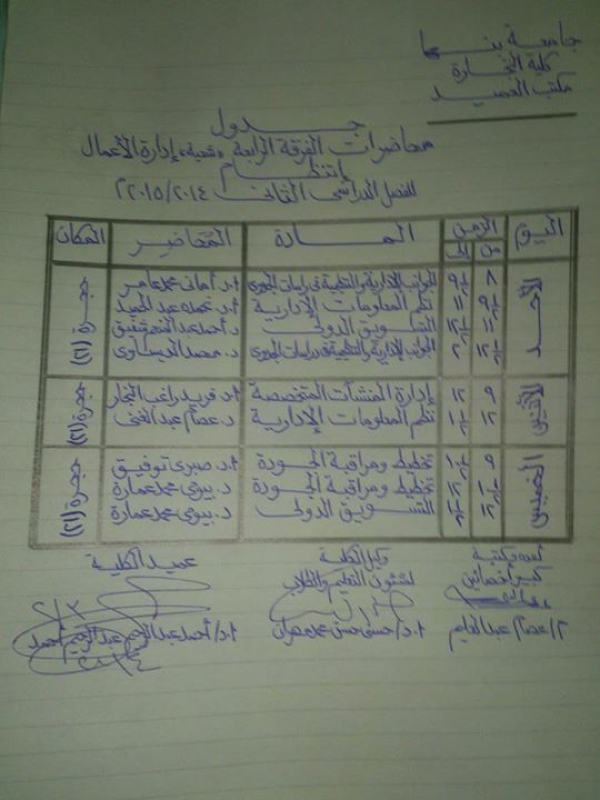 جامعة بنها
كلية التجارة
مكتب العميد
جدول
محاضرات الفرقة الرابعة "شعبة، إدارة الأعمال
إنتظام
للفصل الدراسى الثانى ٢٠١٤/٢٠١٥م
اليوم الزمن المادة المحاضر المكان
من إلى
الأحد ٨ ٩½ الجوانب الإدارية والتنظيمية فى دراسات الجدوى أ.د. أمانى محمد عامر حجرة (٢١)
٩½ ١١ نظم المعلومات الإدارية أ.د. عبد الحميد
١١ ١٢½ التسويق الدولى د. أحمد عبد المنعم شفيق
١٢½ ٢ الجوانب الإدارية والتنظيمية فى دراسات الجدوى د. محمد الديساوى
الأثنين ٩ ١٢ إدارة المنشآت المتخصصة أ.د. فريد راغب النجار حجرة (٢١)
١٢ ١½ نظم المعلومات الإدارية د. عصام عبد الغنى
الخميس ٩ ١٠½ تخطيط ومراقبة الجودة أ.د. صبرى توفيق حجرة (٢١)
١٠½ ١٢ تخطيط ومراقبة الجودة د. بيومى محمد عمارة
١٢ ١½ التسويق الدولى د. بيومى محمد عمارة
أعده وكتبه وكيل الكلية عميد الكلية
كبير أخصائيين لشئون التعليم والطلاب
عصام عبد العليم أ.د/ حسنى حسن محمد مهران أ.د/ أحمد عبد الرحيم أحمد